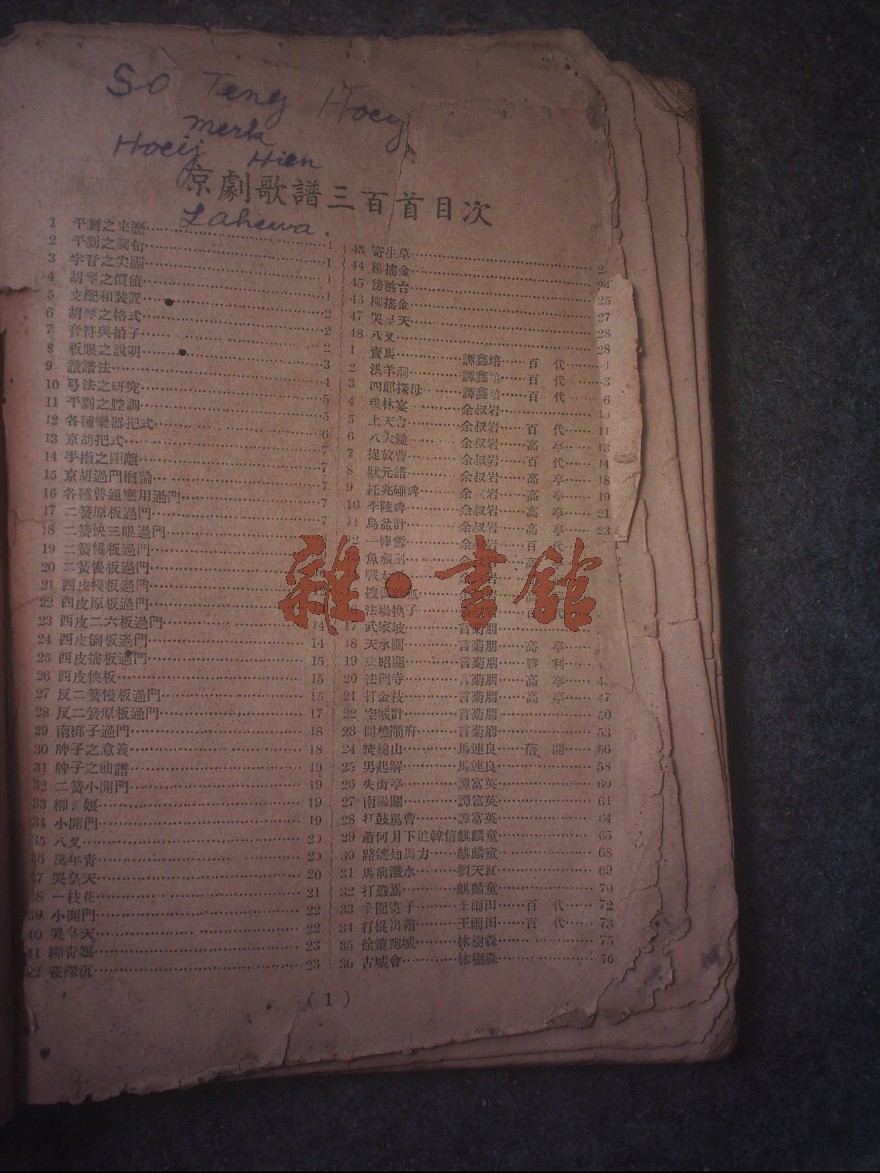 So Teng Hoey
merk
Hoeij Hien
Lahewa.
京劇歌譜三百首目次
1 平劇之來歷 1
2 平劇之詞句 1
3 字音之尖團 1
4 胡琴之價值 1
5 支配和裝置 2
6 胡琴之格式 2
7 音符與拍子 2
8 板眼之說明 3
9 讀譜法 4
10 弓法之研究 5
11 平劇之腔調 5
12 各種樂器把式 6
13 京胡把式 7
14 手指之距離 7
15 京胡過門概論 7
16 各種普通應用過門 7
17 二簧原板過門
18 二簧快三眼過門
19 二簧慢板過門
20 二簧慢板過門
21 西皮慢板過門
22 西皮原板過門
23 西皮二六板過門 14
24 西皮倒板過門 14
25 西皮搖板過門 15
26 西皮快板 15
27 反二簧慢板過門 15
28 反二簧原板過門 17
29 南梆子過門 18
30 牌子之意義 18
31 牌子之曲譜 19
32 二簧小開門 19
33 柳 娘 19
34 小開門 19
35 八叉 20
36 萬年青 20
37 哭皇天 20
38 一枝花 21
39 小開門 22
40 哭皇天 22
41 柳青娘 23
42 夜深沉 23
43 寄生草
44 柳搖金 24
45 傍粧台 25
46 柳搖金 27
47 哭皇天 28
48 八叉 28
1 賣馬 譚鑫培 百代 1
2 洪羊洞 譚鑫培 百代 3
3 四郎探母 譚鑫培 百代 6
4 瓊林宴 余叔岩 10
5 上天台 余叔岩 百代 11
6 八大鎚 余叔岩 高亭 13
7 捉放曹 余叔岩 百代 14
8 狀元譜 余叔岩 高亭 18
9 托兆碰碑 余叔岩 高亭 19
10 李陵碑 余叔岩 高亭 21
11 烏盆計 余叔岩 高亭 23
一捧雪 余叔岩 百代
魚藏劍 余叔岩
法場換子
17 武家坡 言菊朋
18 天水關 言菊朋 高亭
19 文昭關 言菊朋 勝利
20 法門寺 言菊朋 高亭
21 打金枝 言菊朋 高亭 47
22 空城計 言菊朋 50
23 罵楊廣府 言菊朋 53
24 焚棉山 馬連良 蓓開 56
25 男起解 馬連良 58
26 失街亭 譚富英 60
27 南陽關 譚富英 61
28 打鼓罵曹 譚富英 64
29 蕭何月下追韓信 麒麟童 65
30 路遙知馬力 麒麟童 68
31 馬前潑水 劉天紅 69
32 打嚴嵩 麒麟童 70
33 王雨田 百代 72
34 打棍出箱 王雨田 百代 73
35 徐策跑城 林樹森 75
36 古城會 林樹森 76
(1)
雜·書館